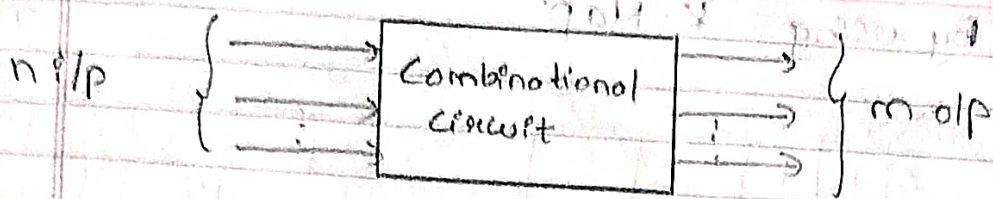 n i/p
Combinational
circuit
m o/p